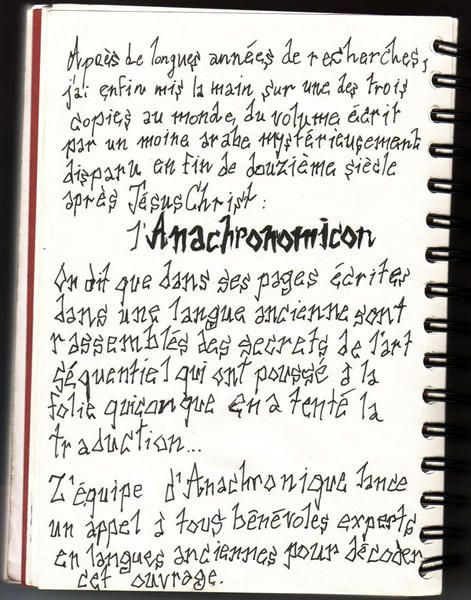 Après de longues années de recherches,
j'ai enfin mis la main sur une des trois
copies au monde, du volume écrit
par un moine arabe mystérieusement
disparu en fin de douzième siècle
après Jésus Christ :
l'Anachronomicon
On dit que dans ses pages écrites
dans une langue ancienne sont
rassemblés des secrets de l'art
séquentiel qui ont poussé à la
folie quiconque en a tenté la
traduction...
L'équipe d'Anachronique lance
un appel à tous bénévoles experts
en langues anciennes pour décoder
cet ouvrage.